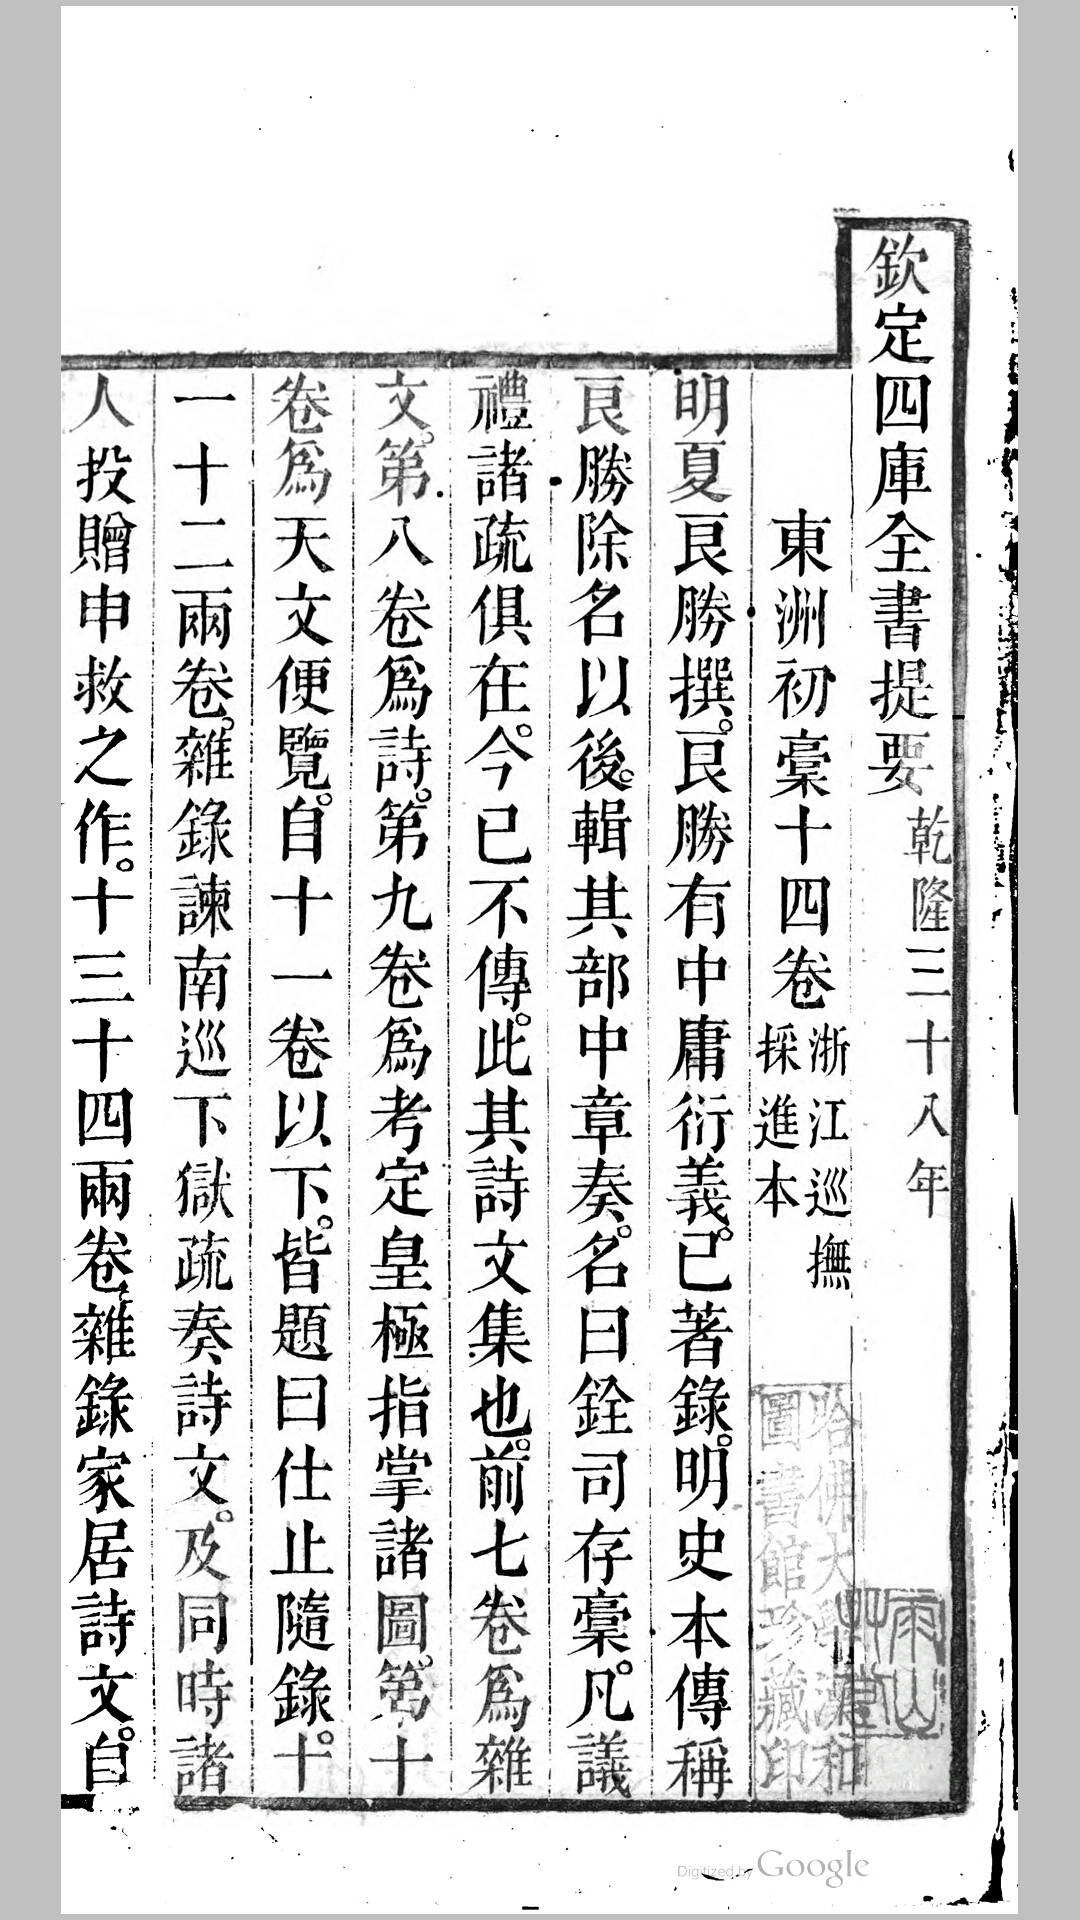 欽定四庫全書提要乾隆三十八年
東洲初稾十四卷浙江巡撫採進本
明夏良勝撰。良勝有中庸衍義。已著錄。明史本傳稱
良勝除名以後。輯其部中章奏。名曰銓司存稾。凡議
禮諸疏俱在。今已不傳。此其詩文集也。前七卷爲雜
文。第八卷爲詩。第九卷爲考定皇極指掌諸圖。第十
卷爲天文便覽。自十一卷以下。皆題曰仕止隨錄。十
一十二兩卷。雜錄諫南巡下獄疏奏詩文。及同時諸
人投贈申救之作。十三十四兩卷雜錄家居詩文。自
哈佛大學漢和圖書館珍藏印
Digitized by Google